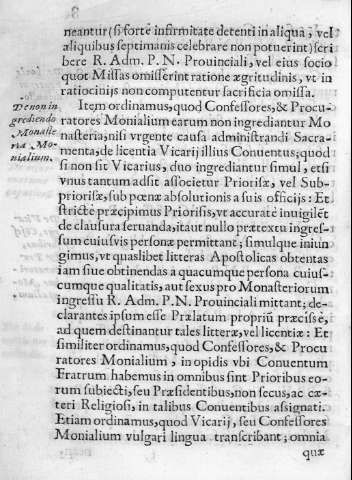 neantur (si fortè infirmitate detenti in aliqua, vel
aliquibus septimanis celebrare non potuerint) scri
bere R. Adm. P. N. Prouinciali, vel eius socio
quot Missas omisserint ratione ægritudinis, vt in
ratiocinijs non computentur sacrificia omissa.
De non in
grediendo
Monaste
ria Mo-
nialium.
Item ordinamus, quod Confessores, & Procu-
ratores Monialium earum non ingrediantur Mo
nasteria, nisi vrgente causa administrandi Sacra-
menta, de licentia Vicarij illius Conuentus; quod
si non sit Vicarius, duo ingrediantur simul, etsi
vnus tantum adsit associetur Priorisæ, vel Sub-
priorisæ, sub pœna absolutionis a suis officijs: Et
strictè præcipimus Priorisis, vt accuratè inuigilēt
de clausura seruanda, ita ut nullo prætextu ingres-
sum cuiusvis personæ permittant; simulque iniun
gimus, vt quaslibet litteras Apostolicas obtentas
iam siue obtinendas a quacumque persona cuius-
cumque qualitatis, aut sexus pro Monasteriorum
ingressu R. Adm. P. N. Prouinciali mittant; de-
clarantes ipsum esse Prælatum propriū præcisè,
ad quem destinantur tales litteræ, vel licentiæ: Et
similiter ordinamus, quod Confessores, & Procu
ratores Monialium, in opidis vbi Conuentum
Fratrum habemus in omnibus sint Prioribus eo-
rum subiecti, seu Præsidentibus, non secus, ac cæ-
teri Religiosi, in talibus Conuentibus assignati.
Etiam ordinamus, quod Vicarij, seu Confessores
Monialium vulgari lingua transcribant; omnia
quæ